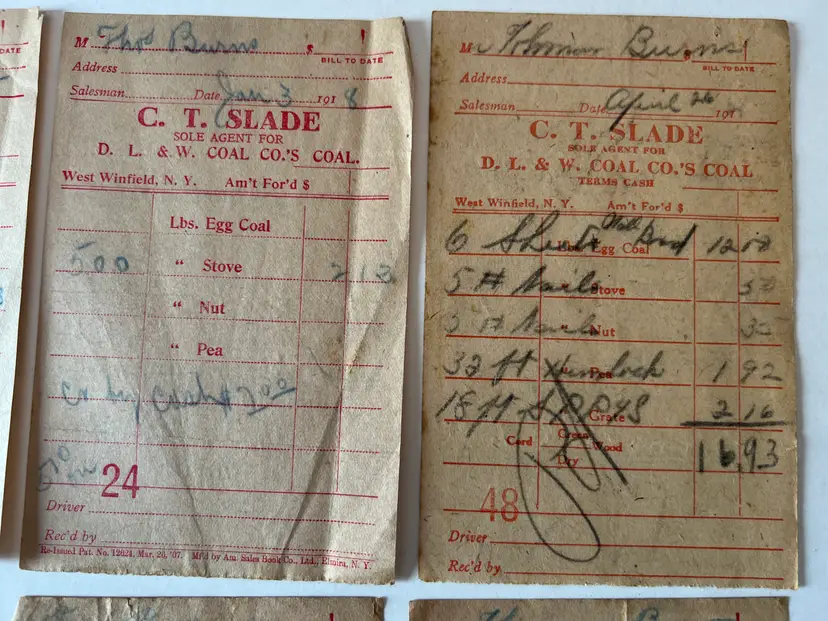 M Thos Burns $
BILL TO DATE
Address
Salesman Date Jan 3 1918
C. T. SLADE
SOLE AGENT FOR
D. L. & W. COAL CO.'S COAL.
West Winfield, N. Y. Am't For'd $
Lbs. Egg Coal
500 " Stove 213
" Nut
" Pea
Cr by Cash
24
Driver
Rec'd by
Re-Issued Pat. No. 12624, Mar. 26, '07. Mf'd by Am. Sales Book Co., Ltd., Elmira, N. Y.
M Burns
BILL TO DATE
Address
Salesman Date April 26 191
C. T. SLADE
SOLE AGENT FOR
D. L. & W. COAL CO.'S COAL
TERMS CASH
West Winfield, N. Y. Am't For'd $
6 Sheets Wall Brd Egg Coal 12 00
5 # Nails Stove
# Nails Nut
32 ft Hemlock Pea 1 92
18 ft Grate 2 16
Cord Green Wood 16.93
Dry
48
Driver
Rec'd by
DATE